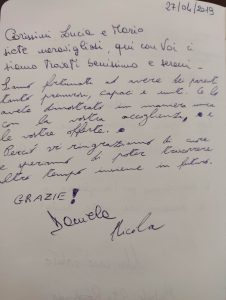 27/04/2019
Carissimi Lucia e Mario
siete meravigliosi, qui con Voi ci
siamo trovati benissimo e sereni -
siamo fortunati ad avere dei parenti
tanto premurosi, capaci e uniti. Ce lo
avete dimostrato in maniera unica
con la vostra accoglienza, e
le vostre offerte.
Perciò vi ringraziamo di cuore
e speriamo di poter trascorrere
altro tempo insieme in futuro.
GRAZIE!
Daniela
Nicola